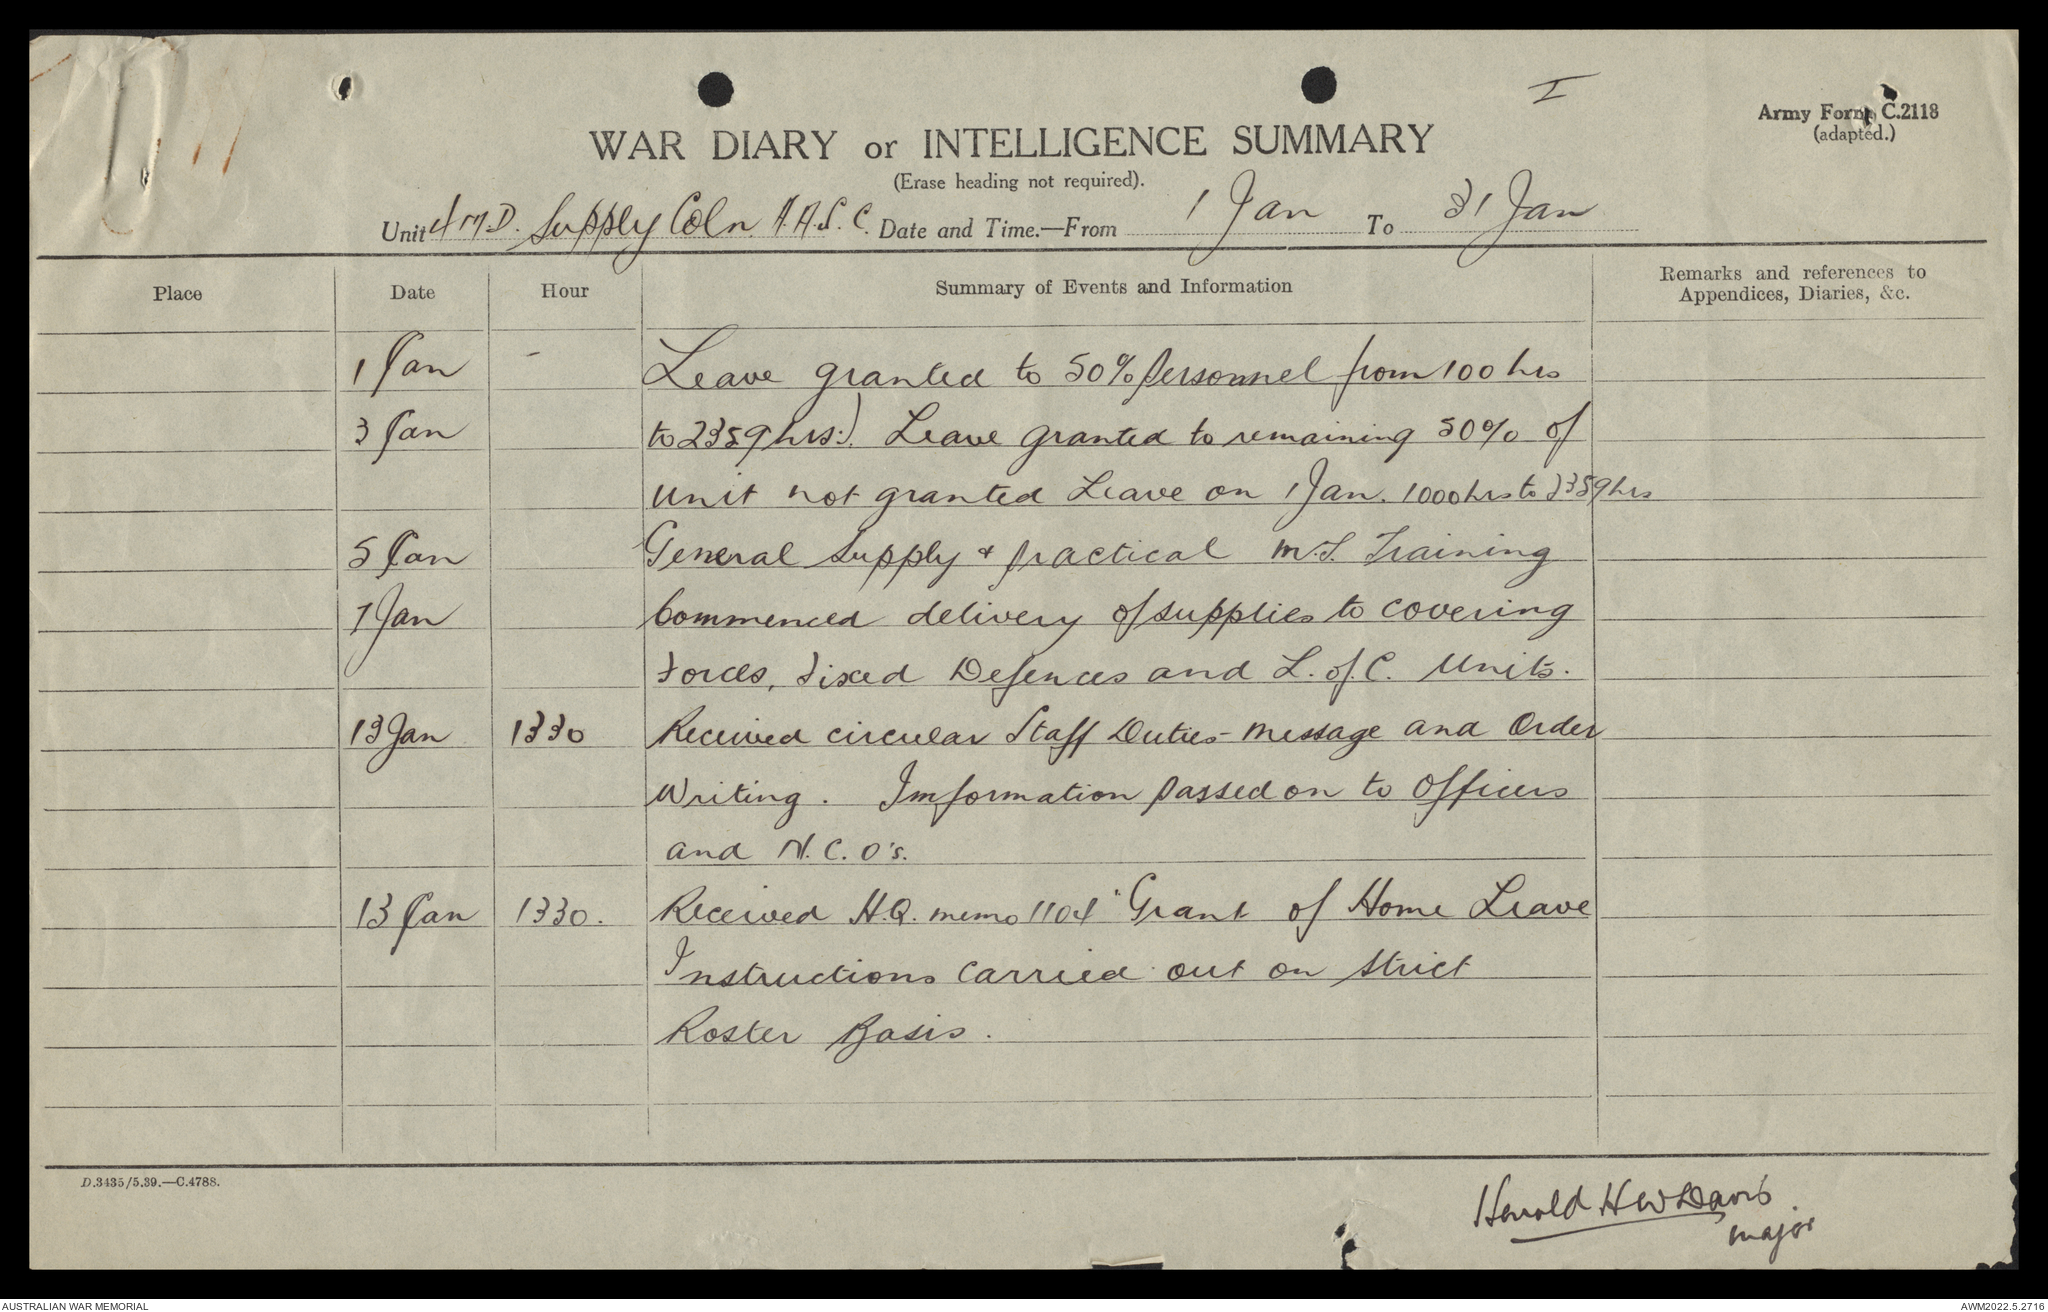 I
Army Form C.2118
(adapted.)
WAR DIARY or INTELLIGENCE SUMMARY
(Erase heading not required).
Unit 4 M.D. Supply Coln. A.A.S.C. Date and Time.—From 1 Jan To 31 Jan
Place Date Hour Summary of Events and Information Remarks and references to Appendices, Diaries, &c.
1 Jan - Leave granted to 50% personnel from 100 hrs
3 Jan to 2359 hrs:). Leave granted to remaining 50% of
unit not granted Leave on 1 Jan. 1000 hrs to 2359 hrs
5 Jan General Supply & practical M.T. Training
7 Jan Commenced delivery of supplies to covering
forces, fixed Defences and L. of C. Units.
13 Jan 1330 Received circular Staff Duties - Message and Order
Writing. Imformation passed on to Officers
and N.C.O's.
13 Jan 1330. Received H.Q. memo 1104 "Grant of Home Leave
Instructions carried out on strict
Roster Basis.
D.3435/5.39.—C.4788.
Harold HW Davis
Major
AUSTRALIAN WAR MEMORIAL AWM2022.5.2716